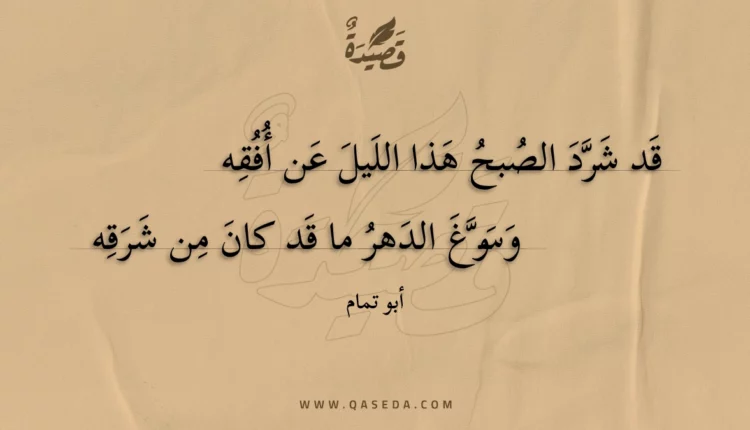 قَصِيْدَةٌ
قَد شَرَّدَ الصُبحُ هَذا اللَيلَ عَن أُفُقِه
وَسَوَّغَ الدَهرُ ما قَد كانَ مِن شَرَقِه
أبو تمام
WWW.QASEDA.COM